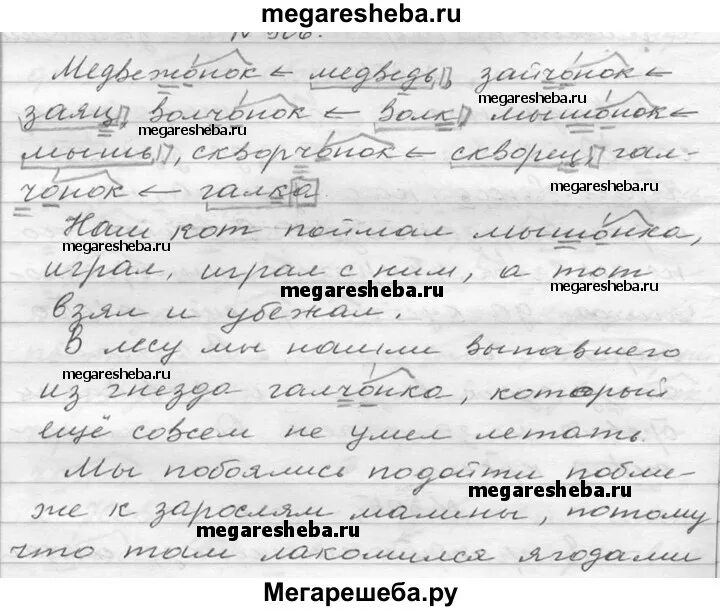 megaresheba.ru
N 306.
Медвежонок ← медведь, зайчонок ←
megaresheba.ru
заяц, волчонок ← волк, мышонок ←
megaresheba.ru
мышь, скворчонок ← скворец, гал-
megaresheba.ru
чонок ← галка.
Наш кот поймал мышонка,
megaresheba.ru
играл, играл с ним, а тот
megaresheba.ru
взял и убежал.
В лесу мы нашли выпавшего
megaresheba.ru
из гнезда галчонка, который
ещё совсем не умел летать.
Мы побоялись подойти побли-
megaresheba.ru
же к зарослям малины, потому
megaresheba.ru
что там лакомился ягодами
Мегарешеба.ру